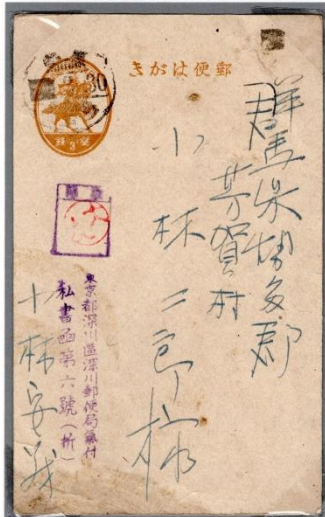 郵便はがき
群馬県勢多郡
芳賀村
小林二郎様
東京都深川區深川郵便局氣付
私書函第六號(析)
小林安義